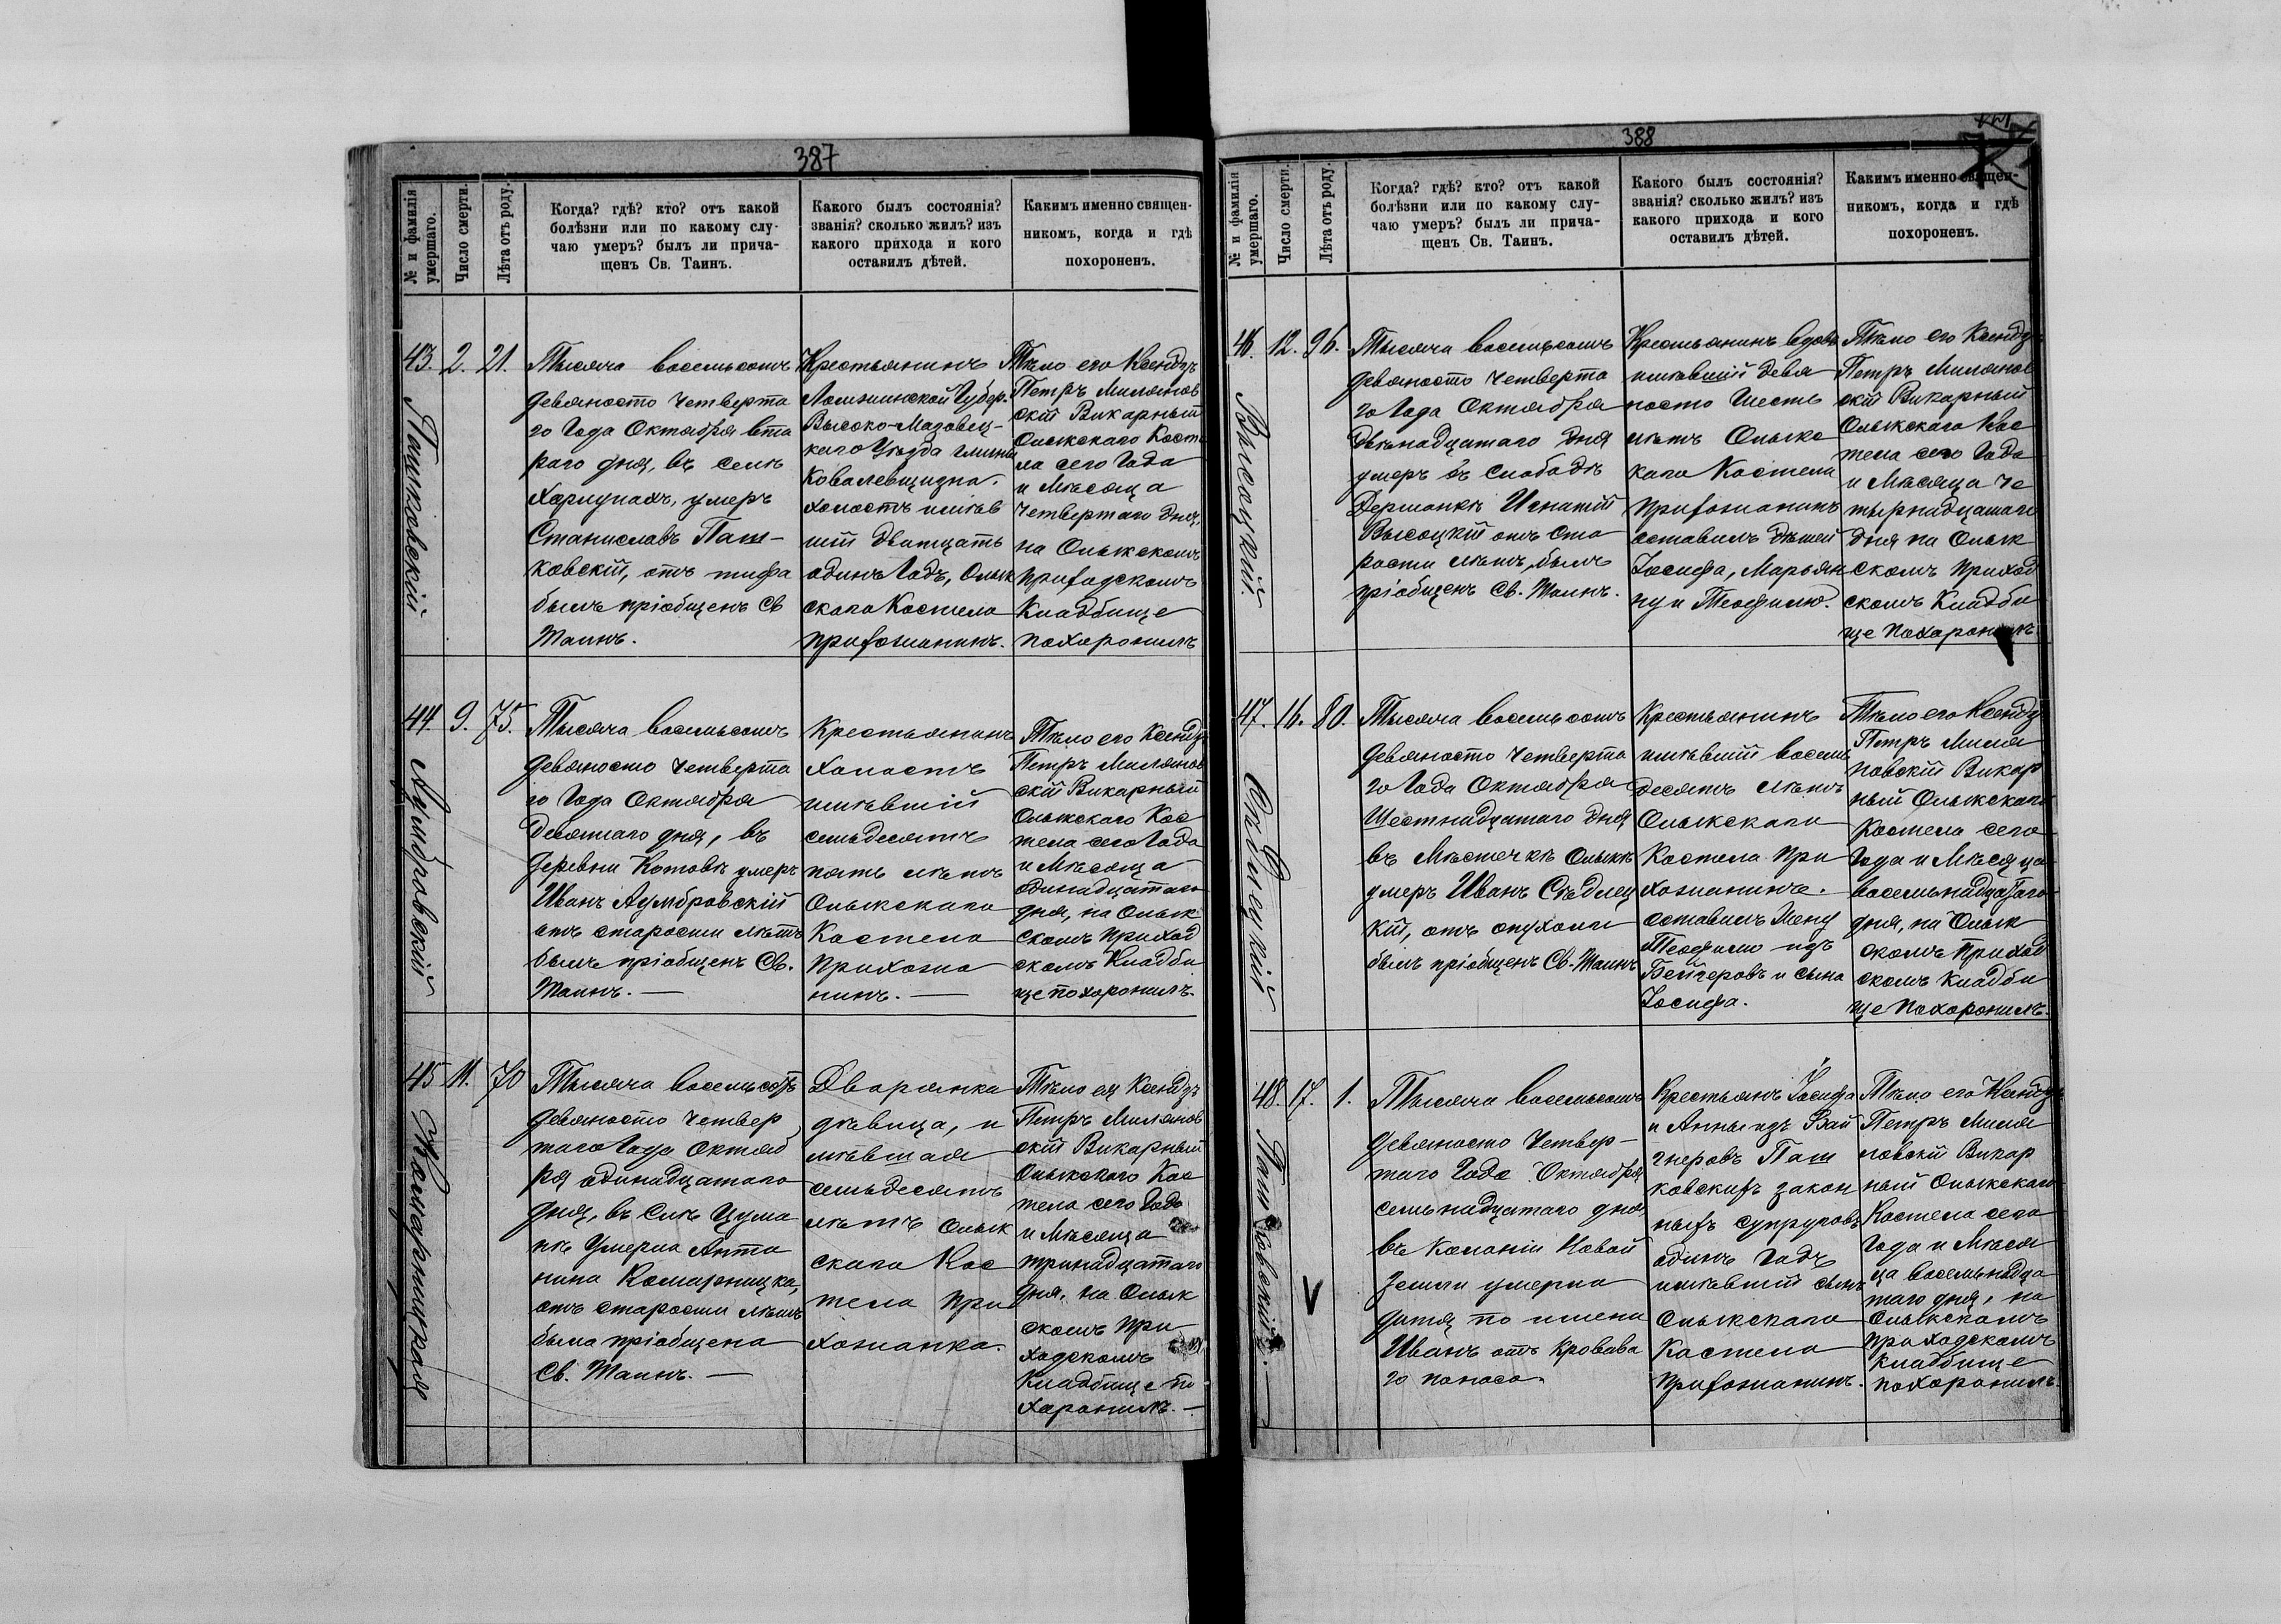 387
№ и фамилія умершаго.
Число смерти.
Лѣта отъ роду.
Когда? гдѣ? кто? отъ какой
болѣзни или по какому слу-
чаю умеръ? былъ ли прича-
щенъ Св. Таинъ.
Какого былъ состоянія?
званія? сколько жилъ? изъ
какого прихода и кого
оставилъ дѣтей.
Какимъ именно священ-
никомъ, когда и гдѣ
похороненъ.
43. 2. 21.
Пашковскій
Тысяча восемьсотъ
девяносто четверта
го Года Октября вта
раго дня, въ селѣ
Хорлупахъ, умеръ
Станиславъ Паш-
ковскій, отъ тифа
былъ пріобщенъ Св
Таинъ.
Крестьянинъ
Ломжинской Губер.
Высоко-Мазовец-
каго Уѣзда гмины
Ковалевщизна.
холостъ имѣв
шій дватцать
одинъ Годъ, Олык
скаго Костела
прихожанинъ.
Тѣло его Ксендзъ
Петръ Миляновс
скій Викарный
Олыкскаго Косте
ла сего Года
и Мѣсяца
четвертаго дня,
на Олыкскомъ
приходскомъ
Кладбище
похоронилъ
44. 9. 75.
Думбровскій
Тысяча восемьсотъ
девяносто четверта
го Года Октября
девятаго дня, въ
деревни Котовѣ умеръ
Иванъ Думбровскій
отъ старости лѣтъ
былъ пріобщенъ Св.
Таинъ. —
Крестьянинъ
холостъ
имѣвшій
семьдесятъ
пять лѣтъ
Олыкскаго
Костела
Прихожа
нинъ. —
Тѣло его Ксендзъ
Петръ Милянов
скій Викарный
Олыкскаго Кос
тела сего Года
и Мѣсяца
одинадцатаго
дня, на Олык
скомъ приход
скомъ Кладби
ще похоронилъ.
45 11. 70
Комарницкая
Тысяча восемьсотъ
девяносто четвер
таго Года Октяб
ря одинадцатаго
дня, въ Селѣ Цума
нѣ Умерла Анто
нина Комарницка,
отъ старости лѣтъ
была пріобщена
Св. Таинъ. —
Дворянка
дѣвица, и
мѣвшая
семьдесятъ
лѣтъ Олык
скаго Кос
тела При
хожанка.
Тѣло ея Ксендзъ
Петръ Милянов
скій Викарный
Олыкскаго Кос
тела сего Года
и Мѣсяца
тринадцатаго
дня, на Олык
скомъ При
ходскомъ
Кладбище по
харонилъ. —
388
№ и фамилія умершаго.
Число смерти.
Лѣта отъ роду.
Когда? гдѣ? кто? отъ какой
болѣзни или по какому слу-
чаю умеръ? былъ ли прича-
щенъ Св. Таинъ.
Какого былъ состоянія?
званія? сколько жилъ? изъ
какого прихода и кого
оставилъ дѣтей.
Какимъ именно священ-
никомъ, когда и гдѣ
похороненъ.
46. 12. 96.
Высоцкій.
Тысяча восемьсотъ
девяносто четверта
го Года Октября
двѣнадцатаго дня
умеръ въ Слободѣ
Дермankѣ Игнатій
Высоцкій отъ ста
рости лѣтъ, былъ
пріобщенъ Св. Таинъ.
Крестьянинъ вдовъ
имѣвшій девя
носто шесть
лѣтъ Олыкс
каго Костела
Прихожанинъ
оставилъ дѣтей
Іосифа, Марьян
ну и Теофилю.
Тѣло его Ксендзъ
Петръ Милянов
скій Викарный
Олыкскаго Кос
тела сего Года
и Мѣсяца че
тырнадцатаго
дня на Олык
скомъ приход
скомъ Кладби
ще похоронилъ.
47. 16. 80.
Сѣдлецкій
Тысяча восемьсотъ
девяносто четверта
го Года Октября
Шестнадцатаго дня
въ Мѣстечкѣ Олыкѣ
умеръ Иванъ Сѣдлец
кій, отъ опухоли
былъ пріобщенъ Св. Таинъ
Крестьянинъ
имѣвшій восемь
десятъ лѣтъ
Олыкскаго
Костела При
хожанинъ.
оставилъ Жену
Теофилю изъ
Бейгеровъ и сына
Іосифа.
Тѣло его Ксендзъ
Петръ Миля
новскій Викар
ный Олыкскаго
Костела сего
Года и Мѣсяца
восемьнадцатаго
дня, на Олык
скомъ Приход
скомъ Кладби
ще Похоронилъ.
48. 17. 1.
Пашковскій.
V
Тысяча восемьсотъ
девяносто Четвер-
таго Года Октября
семьнадцатаго дня,
въ Колоніи Новой
Земли умерло
дитя по имени
Иванъ отъ кровава
го поноса.
Крестьянъ Іосифа
и Анны изъ Вай
гнеровъ Паш
ковскихъ закон
ныхъ супруговъ
одинъ Годъ
имѣвшій сынъ
Олыкскаго
Костела
Прихожанинъ.
Тѣло его Ксендзъ
Петръ Миля
новскій Викар
ный Олыкскаго
Костела сего
Года и Мѣся
ца восемьнадца
таго дня, на
Олыкскомъ
приходскомъ
Кладбище
похоронилъ.